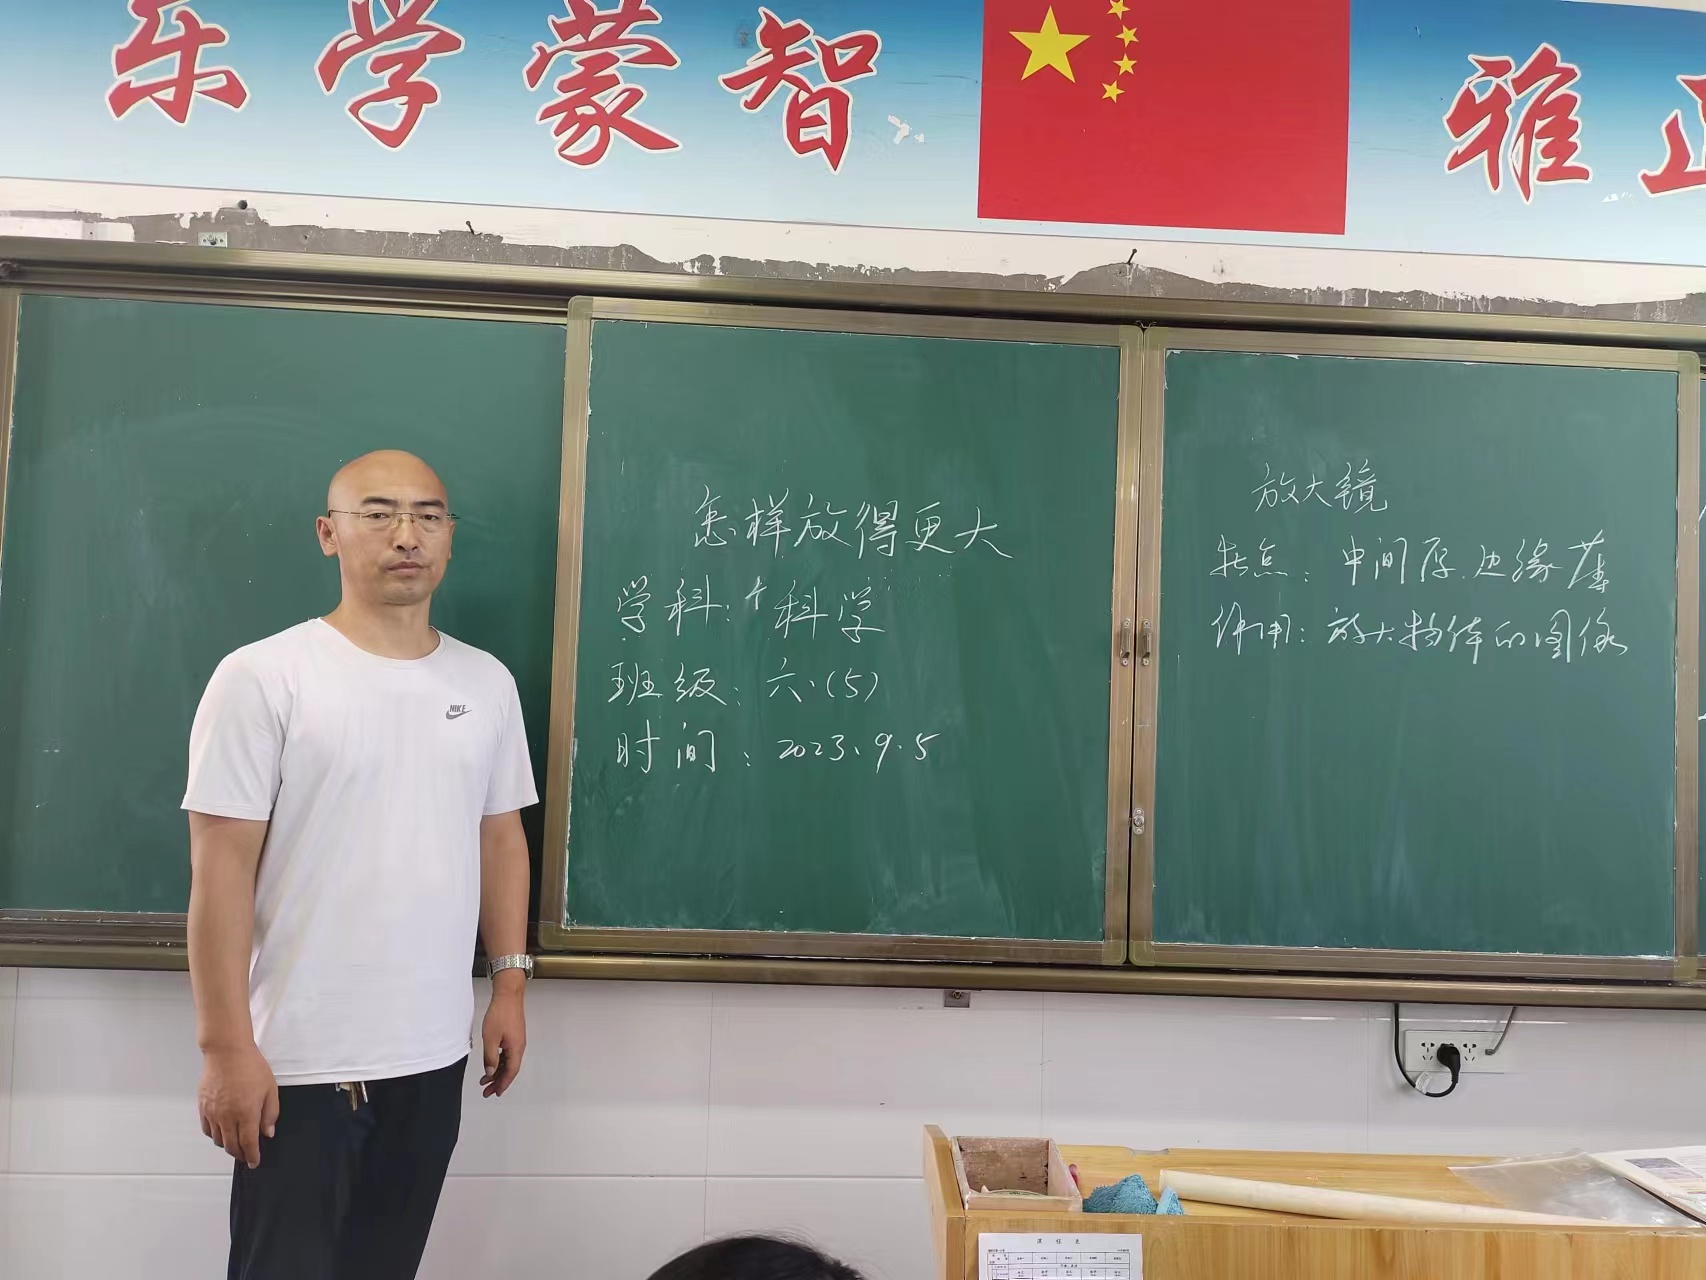 乐学蒙智
雅正
NIKE
怎样放得更大
学科：科学
班级：六·(5)
时间：2023.9.5
放大镜
特点：中间厚、边缘薄
作用：放大物体的图像
课程表